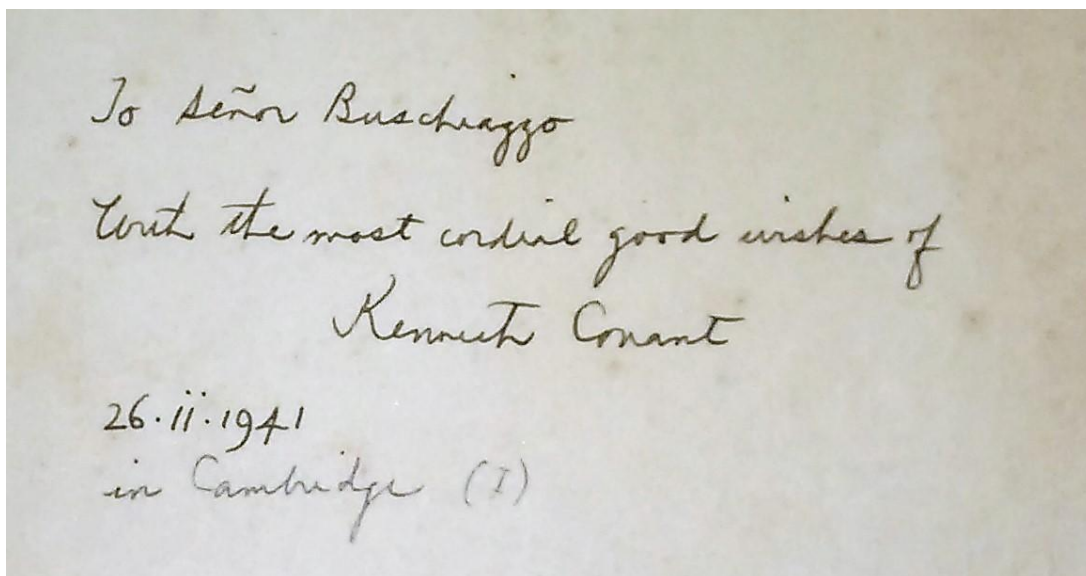 To Señor Buschiazzo
With the most cordial good wishes of
Kenneth Conant
26.ii.1941
in Cambridge (I)